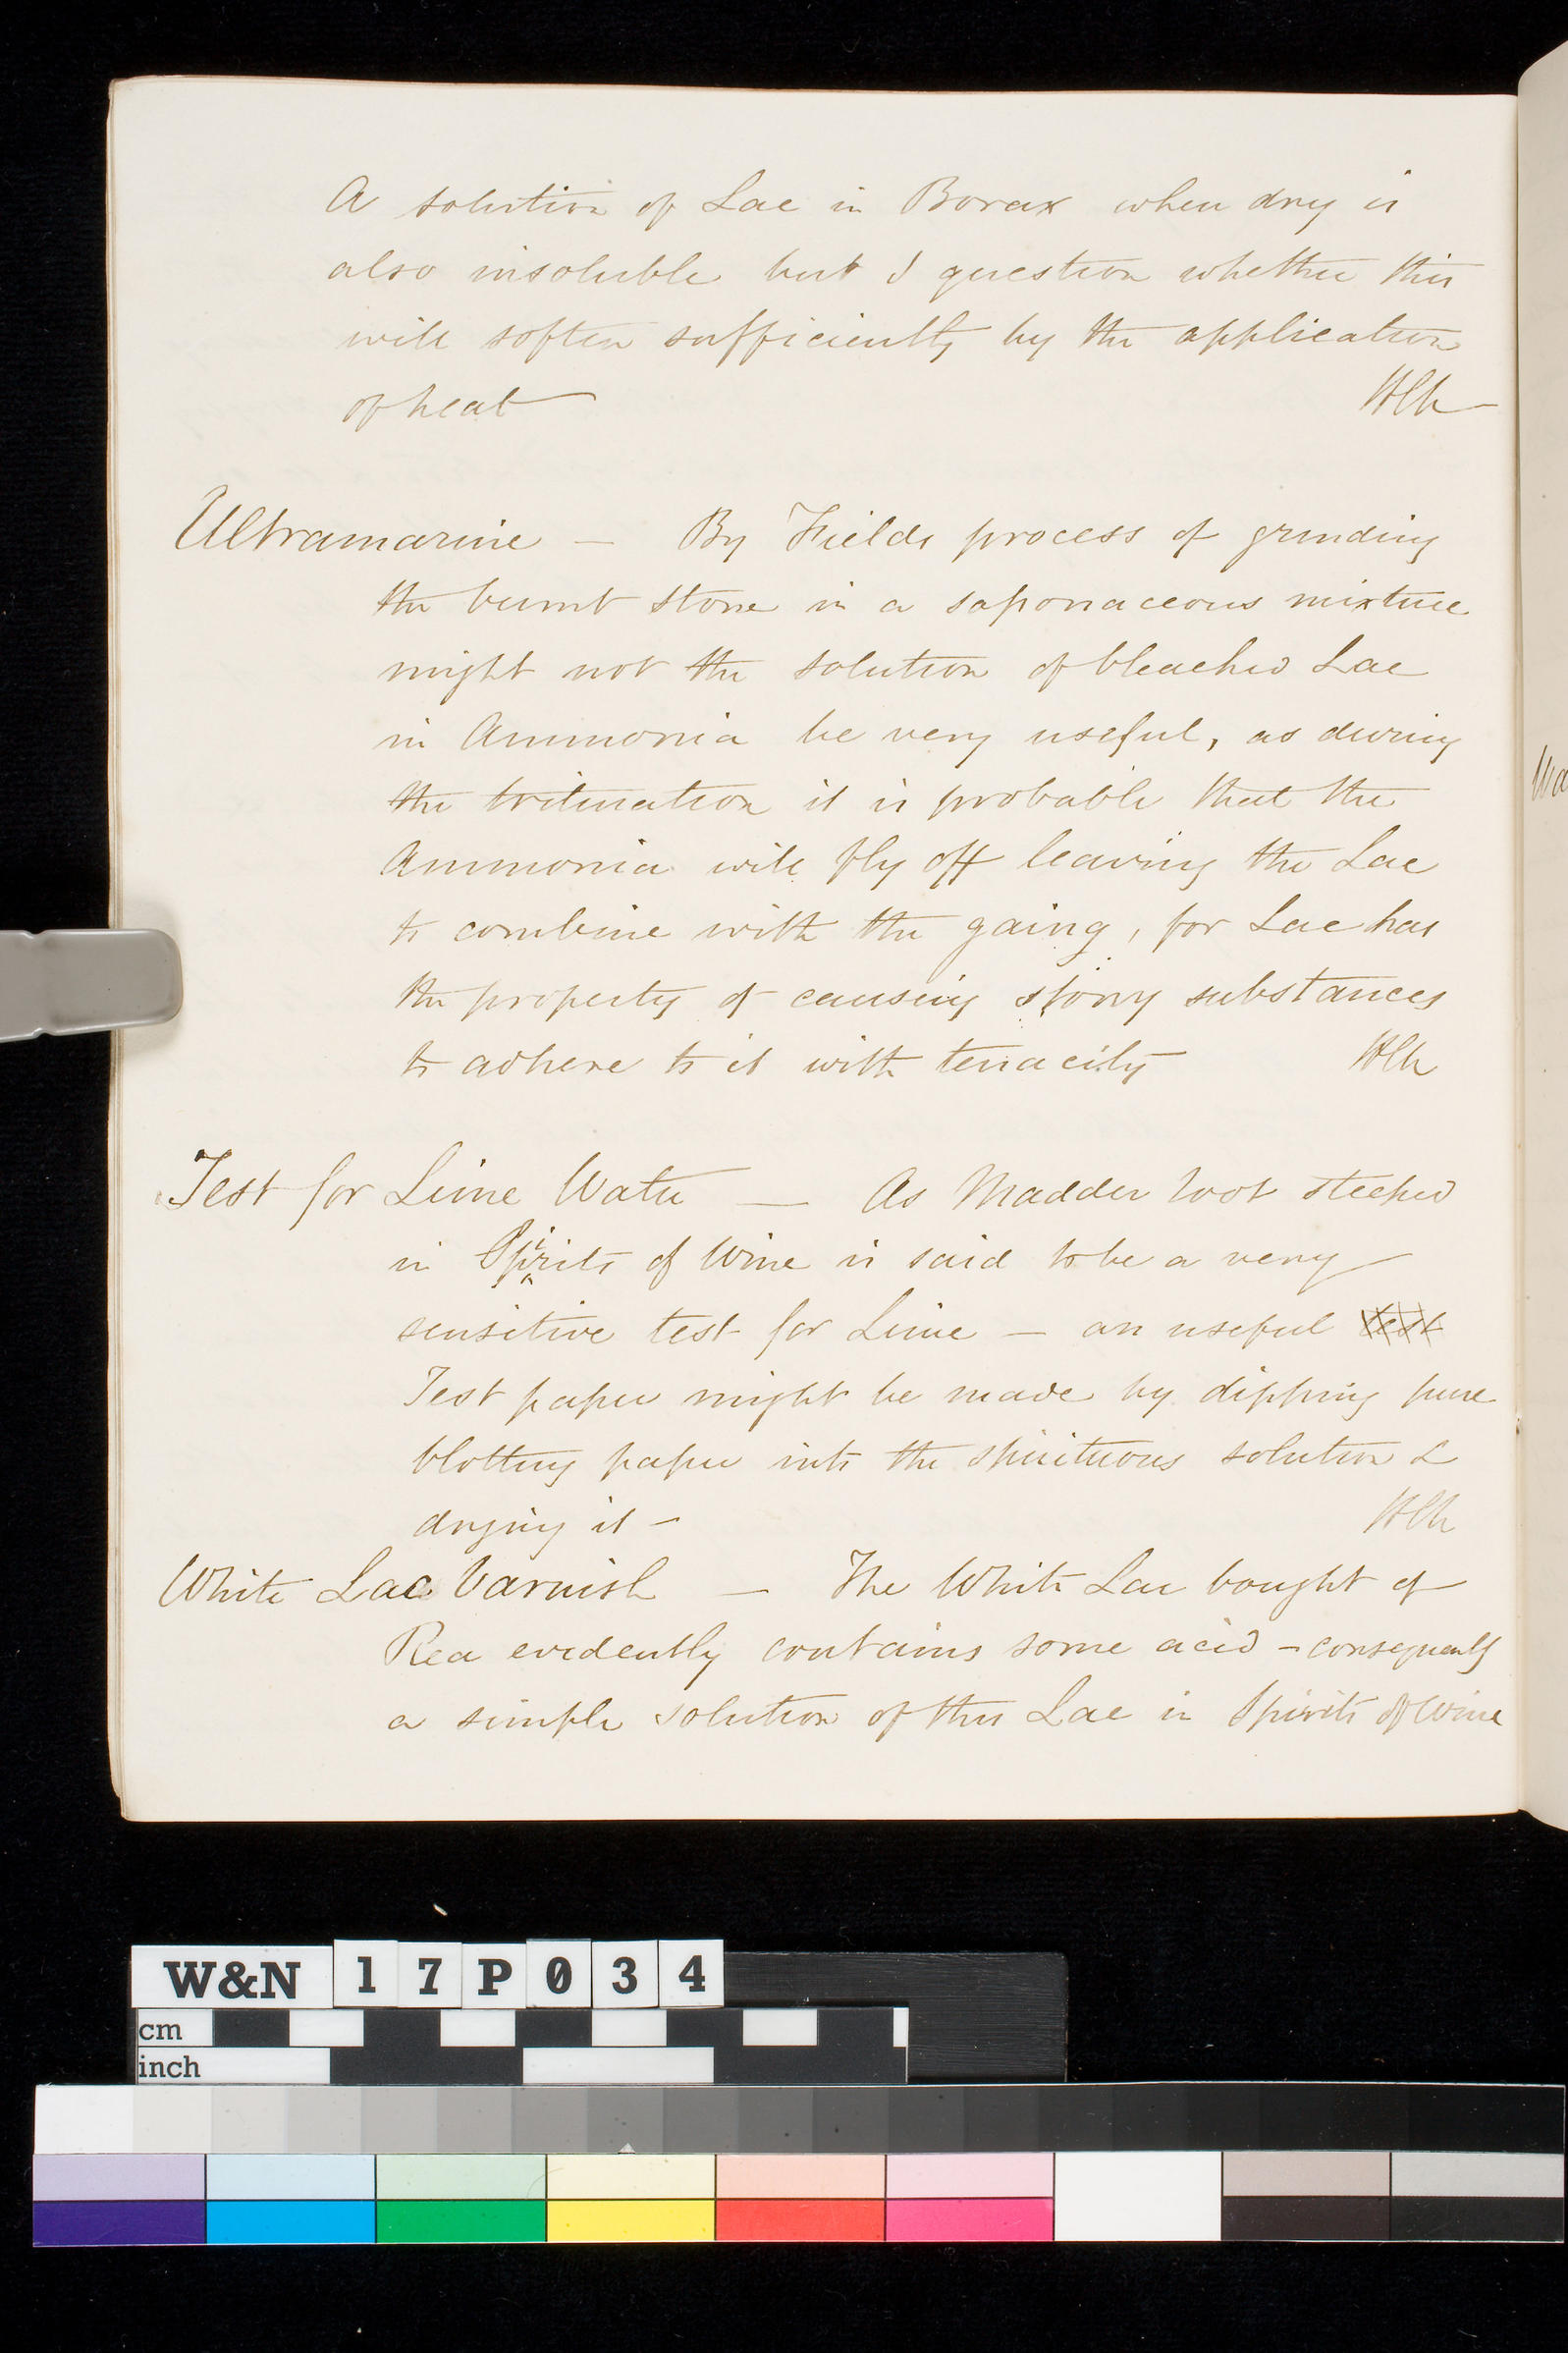 A solution of Lac in Borax when dry is
also insoluble but I question whether this
will soften sufficiently by the application
of heat
Ultramarine — By Fields process of grinding
the burnt stone in a saponaceous mixture
might not the solution of bleached Lac
in Ammonia be very useful, as during
the trituration it is probable that the
Ammonia will fly off leaving the Lac
to combine with the gaing, for Lac has
the property of causing stony substances
to adhere to it with tenacity
Test for Lime Water — As Madder root steeped
in Spirits of Wine is said to be a very
sensitive test for Lime — an useful test
Test paper might be made by dipping pure
blotting paper into the spirituous solution &
drying it —
White Lac Varnish — The White Lac bought of
Rea evidently contains some acid — consequently
a simple solution of this Lac in Spirits of Wine
W&N 17P034
cm
inch